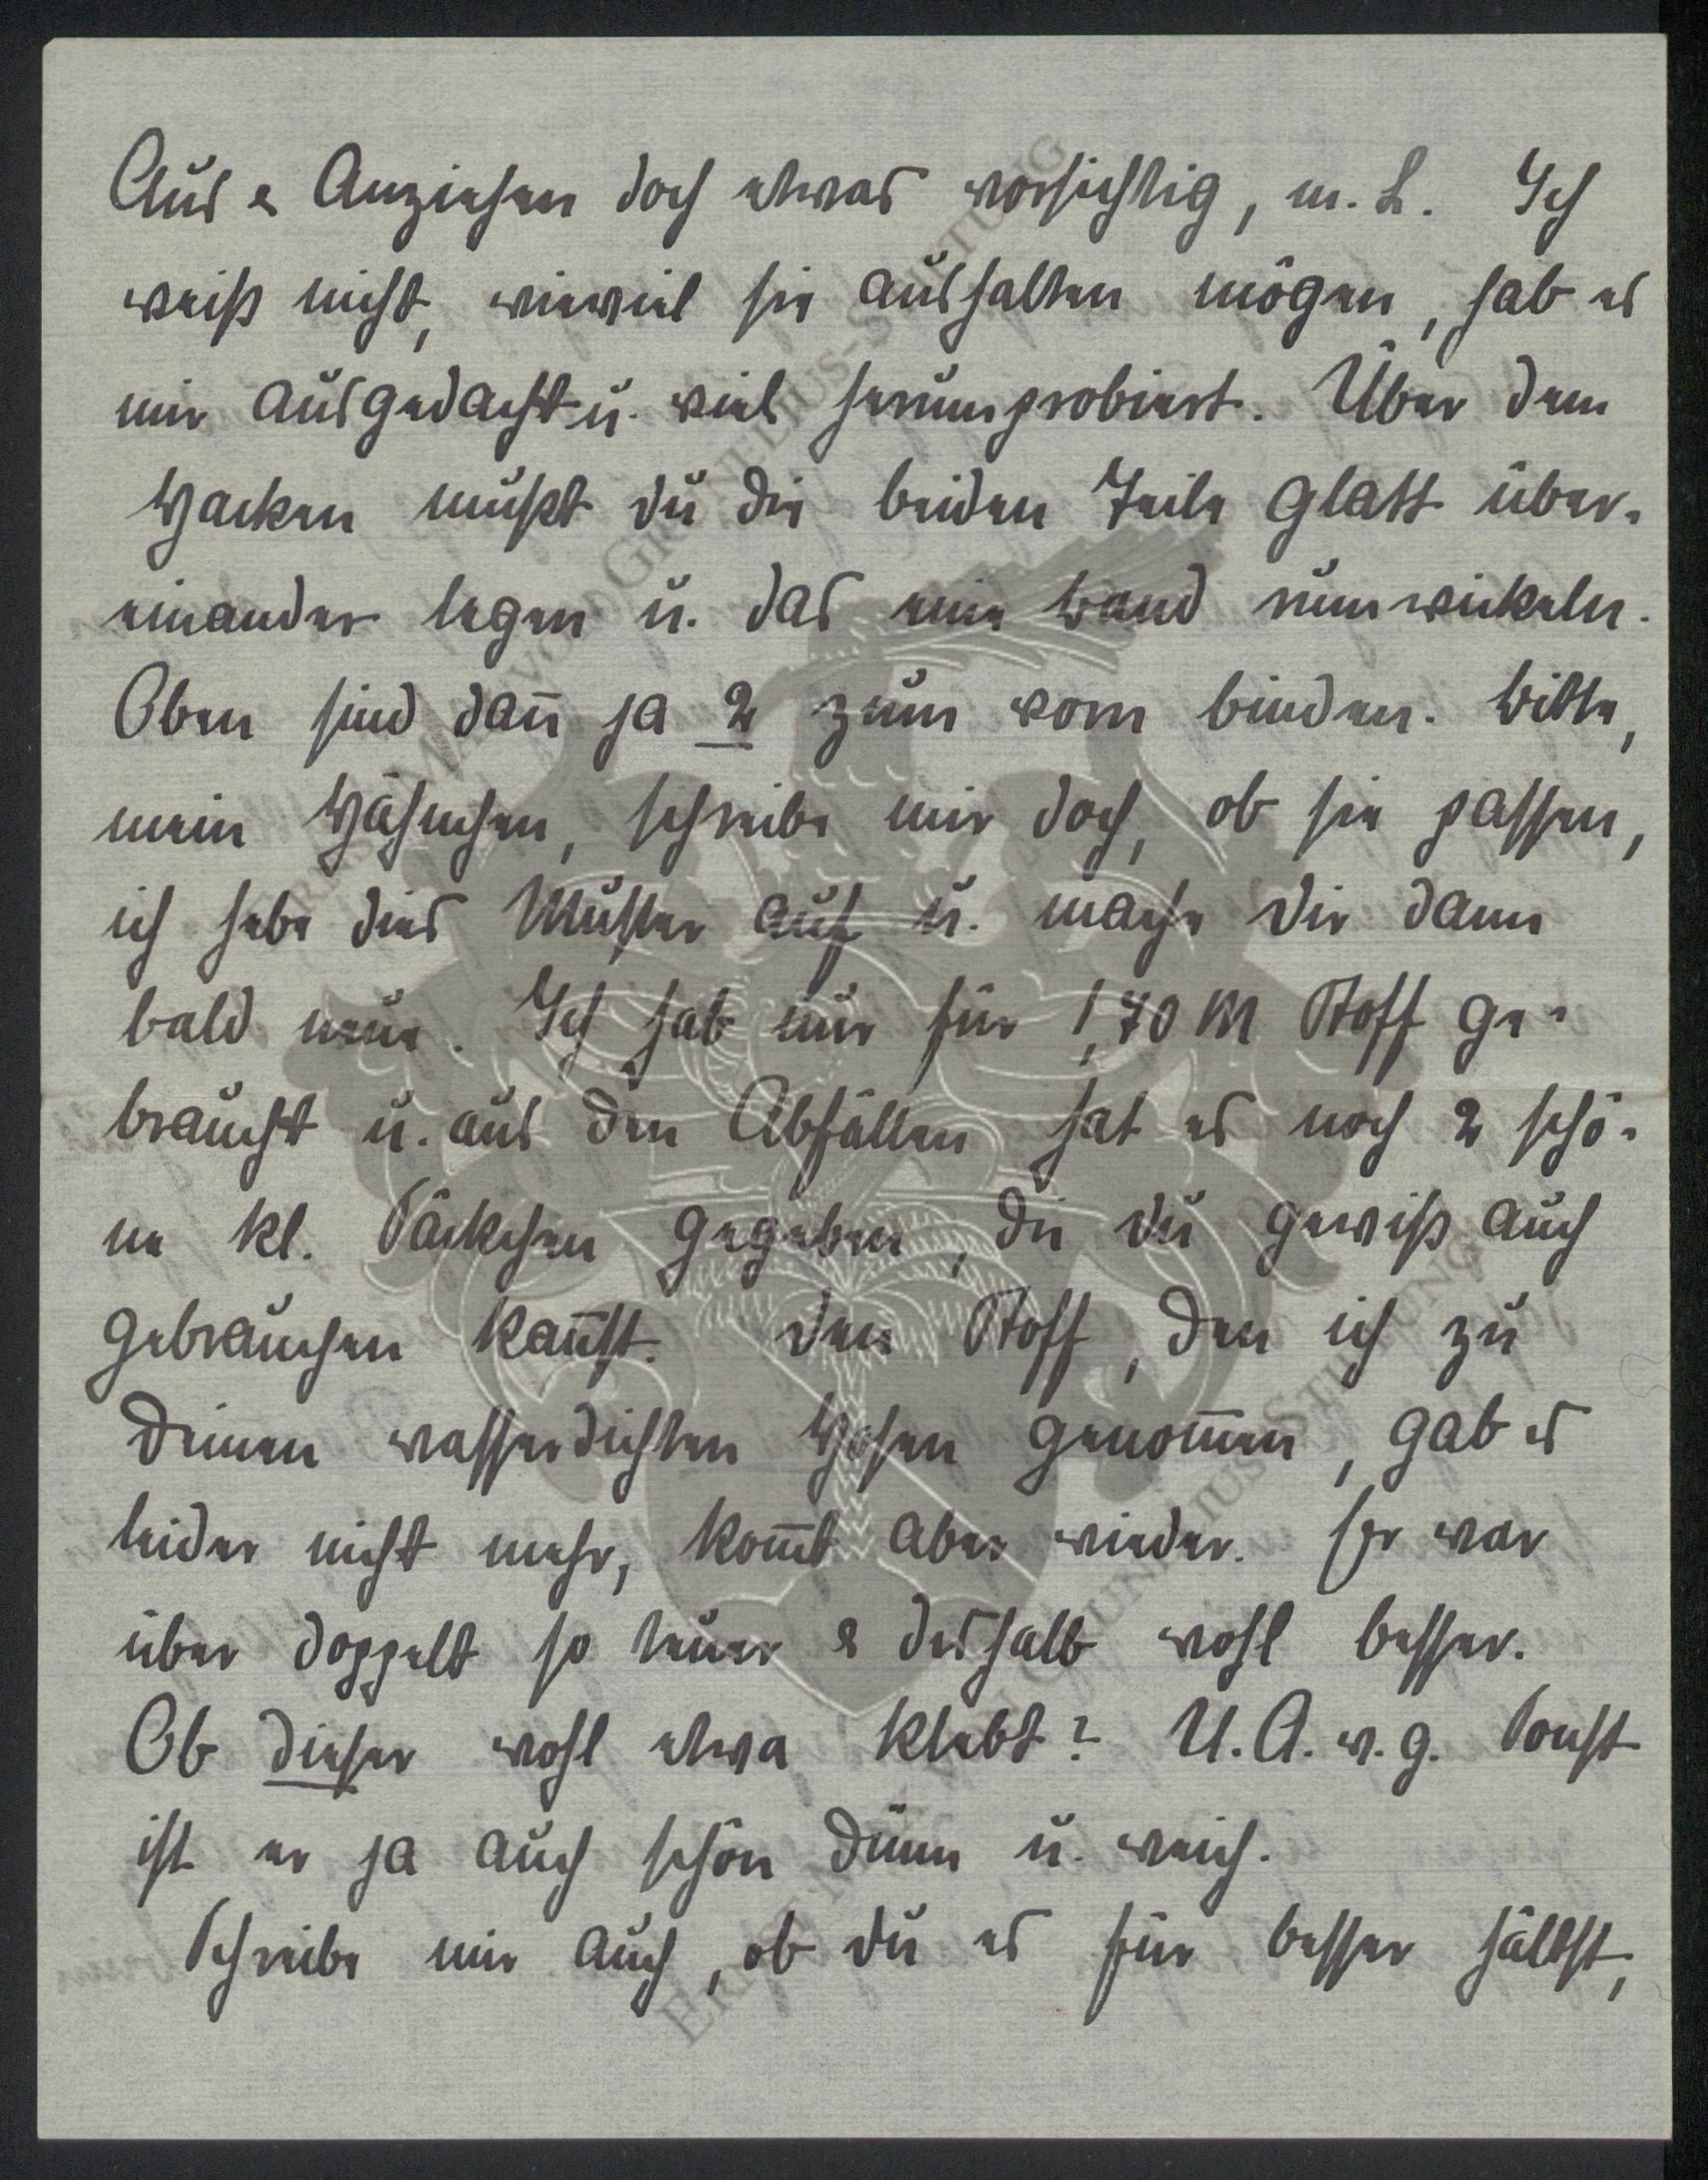 Aus & Anziehen doch etwas vorsichtig, m. L. Ich
weiß nicht, wieviel sie aushalten mögen, hab es
mir ausgedacht u. viel herumprobiert. Über dem
Hacken mußt du die beiden Teile glatt über-
einander legen u. das eine Band rumwickeln.
Oben sind dañ ja 2 zum vorn binden. Bitte,
mein Hähnchen, schreibe mir doch, ob sie passen,
ich hebe dies Muster auf u. mache Dir dann
bald neue. Ich hab nur für 1,70 M Stoff ge-
braucht u. aus den Abfällen hat es noch 2 schö-
ne kl. Säckchen gegeben, die du gewiß auch
gebrauchen kañst. Den Stoff, den ich zu
Deinen wasserdichten Hosen genom̃en, gab es
leider nicht mehr, kom̃t aber wieder. Er war
über doppelt so teuer & deshalb wohl besser.
Ob dieser wohl etwa klebt? U. A. w. g. Sonst
ist er ja auch schön dünn u. weich.
Schreibe mir auch, ob du es für besser hältst,
ERNST MAX VON GRUNELIUS-STIFTUNG
ERNST MAX VON GRUNELIUS-STIFTUNG